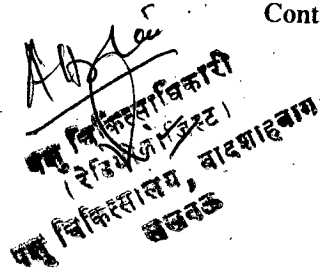 Cont
पशु चिकित्साधिकारी
(रेडियोलॉजिस्ट)
पशु चिकित्सालय, बादशाहबाग
लखनऊ